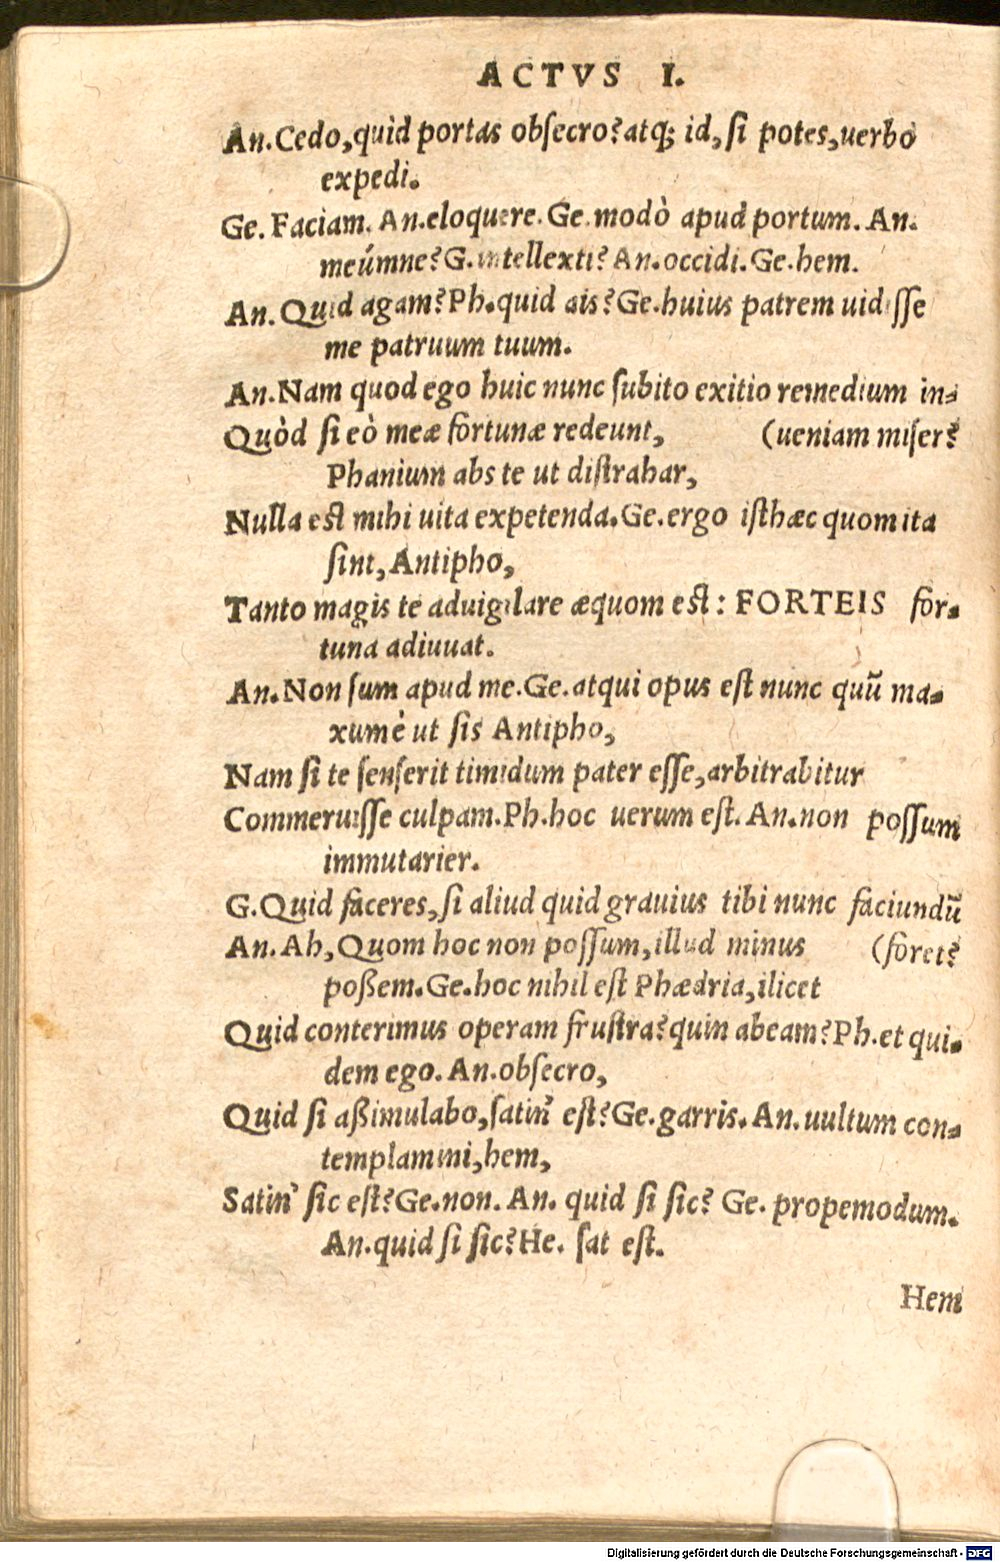 ACTVS I.
An. Cedo, quid portas obſecro? atq; id, ſi potes, uerbo
expedi.
Ge. Faciam. An. eloquere. Ge. modò apud portum. An.
meúmne? G. intellexti? An. occidi. Ge. hem.
An. Quid agam? Ph. quid ais? Ge. huius patrem uidiſſe
me patruum tuum.
An. Nam quod ego huic nunc ſubito exitio remedium in-
Quòd ſi eò meæ fortunæ redeunt, (ueniam miſer?
Phanium abs te ut diſtrahar,
Nulla eſt mihi uita expetenda. Ge. ergo iſthæc quom ita
ſint, Antipho,
Tanto magis te aduigilare æquom eſt: FORTEIS for-
tuna adiuuat.
An. Non ſum apud me. Ge. atqui opus eſt nunc quū ma-
xumè ut ſis Antipho,
Nam ſi te ſenſerit timidum pater eſſe, arbitrabitur
Commeruiſſe culpam. Ph. hoc uerum eſt. An. non poſſum
immutarier.
G. Quid faceres, ſi aliud quid grauius tibi nunc faciundū
An. Ah, Quom hoc non poſſum, illud minus (foret?
poßem. Ge. hoc nihil eſt Phædria, ilicet
Quid conterimus operam fruſtra? quin abeam? Ph. et qui-
dem ego. An. obſecro,
Quid ſi aßimulabo, ſatin' eſt? Ge. garris. An. uultum con-
templamini, hem,
Satin' ſic eſt? Ge. non. An. quid ſi ſic? Ge. propemodum.
An. quid ſi ſic? He. ſat eſt.
Hem
Digitalisierung gefördert durch die Deutsche Forschungsgemeinschaft - DFG